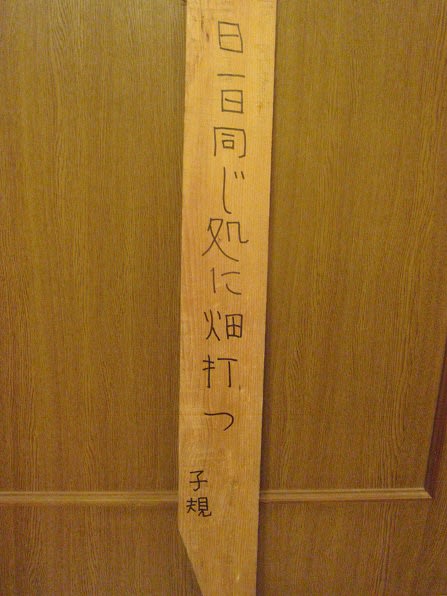 日一日同じ処に畑打つ
子規